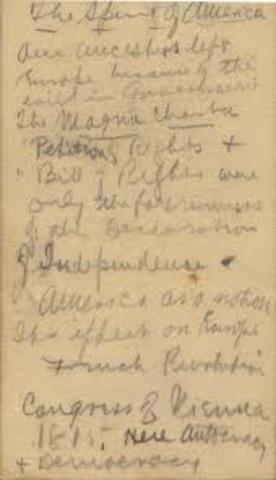 The Spirit of America
Our ancestors left
Europe because of the
evils in Government
The Magna Charta
Petition of Rights +
" Bill of Rights were
only the forerunners
of the Declaration
of Independence
America as a nation
Its effect on Europe
French Revolution
Congress of Vienna
1815. Here Autocracy
+ Democracy